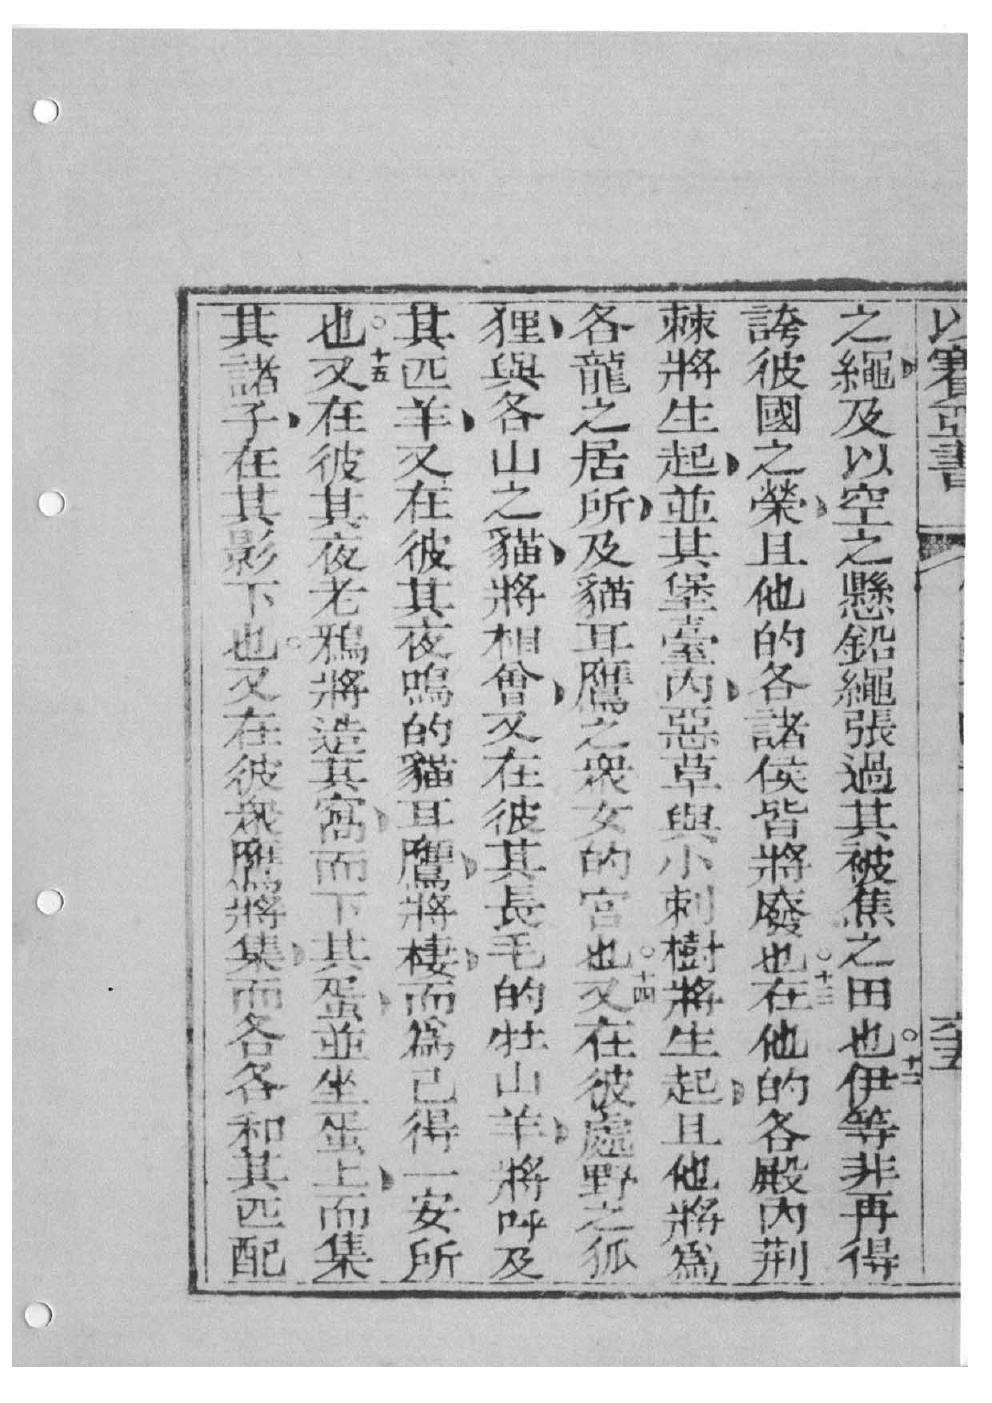 以賽亞書
六五
之繩及以空之懸鉛繩張過其被焦之田也○十二伊等非再得
誇彼國之榮且他的各諸侯皆將廢也○十三在他的各殿內荊
棘將生起並其堡臺內惡草與小刺樹將生起且他將為
各龍之居所及貓耳鷹之衆女的宮也○十四又在彼處野之狐
狸與各山之貓將相會又在彼其長毛的牡山羊將呼及
其匹羊又在彼其夜鳴的貓耳鷹將棲而為己得一安所
也○十五又在彼其夜老鴉將造其窩而下其蛋並坐蛋上而集
其諸子在其影下也○又在彼衆鷹將集而各各和其匹配